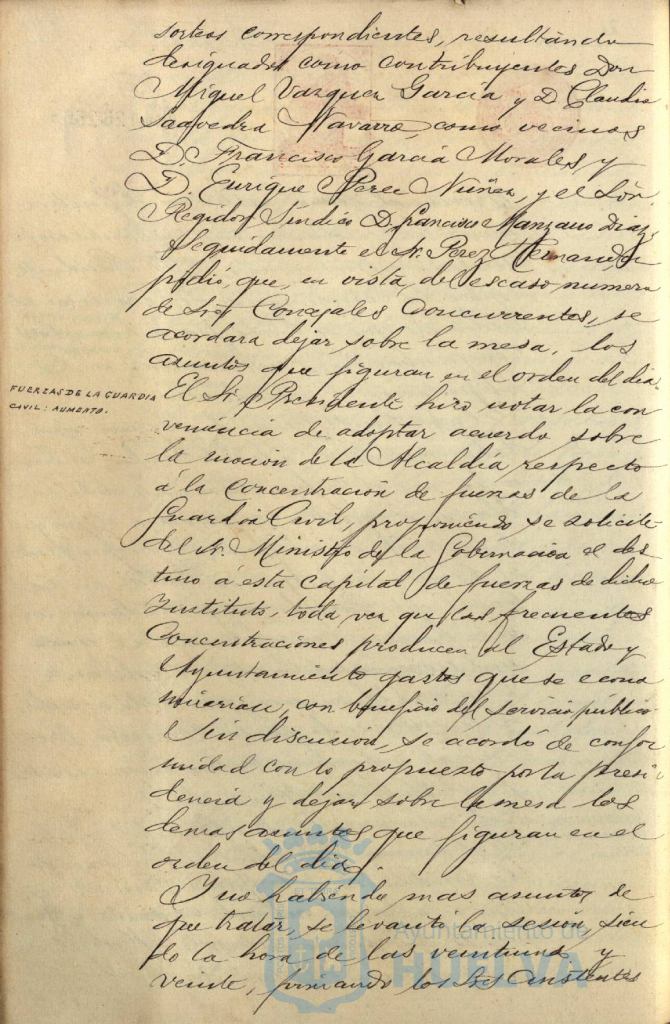 sorteos correspondientes, resultando
designados como contribuyentes Don
Miguel Vazquez García y D. Claudio
Saavedra Navarro, como vecinos
D. Francisco García Morales, y
D. Enrique Perez Nuñez, y el Sór.
Regidor Síndico D. Francisco Manzano Diaz.
Seguidamente el Sr. Perez Hernandez
pidió, que, en vista, del escaso numero
de Sres Concejales concurrentes, se
acordara dejar sobre la mesa, los
asuntos que figuran en el orden del dia.
FUERZAS DE LA GUARDIA
CIVIL: AUMENTO.
El Sr. Presidente hizo notar la con
veniencia de adoptar acuerdo sobre
la mocion de la Alcaldía respecto
á la concentración de fuerzas de la
Guardia Civil, proponiendo se solicite
del Sr. Ministro de la Gobernacion el des
tino á esta capital de fuerzas de dicho
Instituto, toda vez que las frecuentes
concentraciones producen al Estado y
Ayuntamiento gastos que se econo
mizarian, con beneficio del servicio público.
Sin discusion, se acordó de confor
midad con lo propuesto por la Presi
dencia y dejar sobre la mesa los
demas asuntos que figuran en el
orden del dia.
Y no habiendo mas asuntos de
que tratar, se levantó la sesion, sien
do la hora de las veintiuna y
veinte, firmando los Sres asistentes
Ayuntamiento de
HUELVA